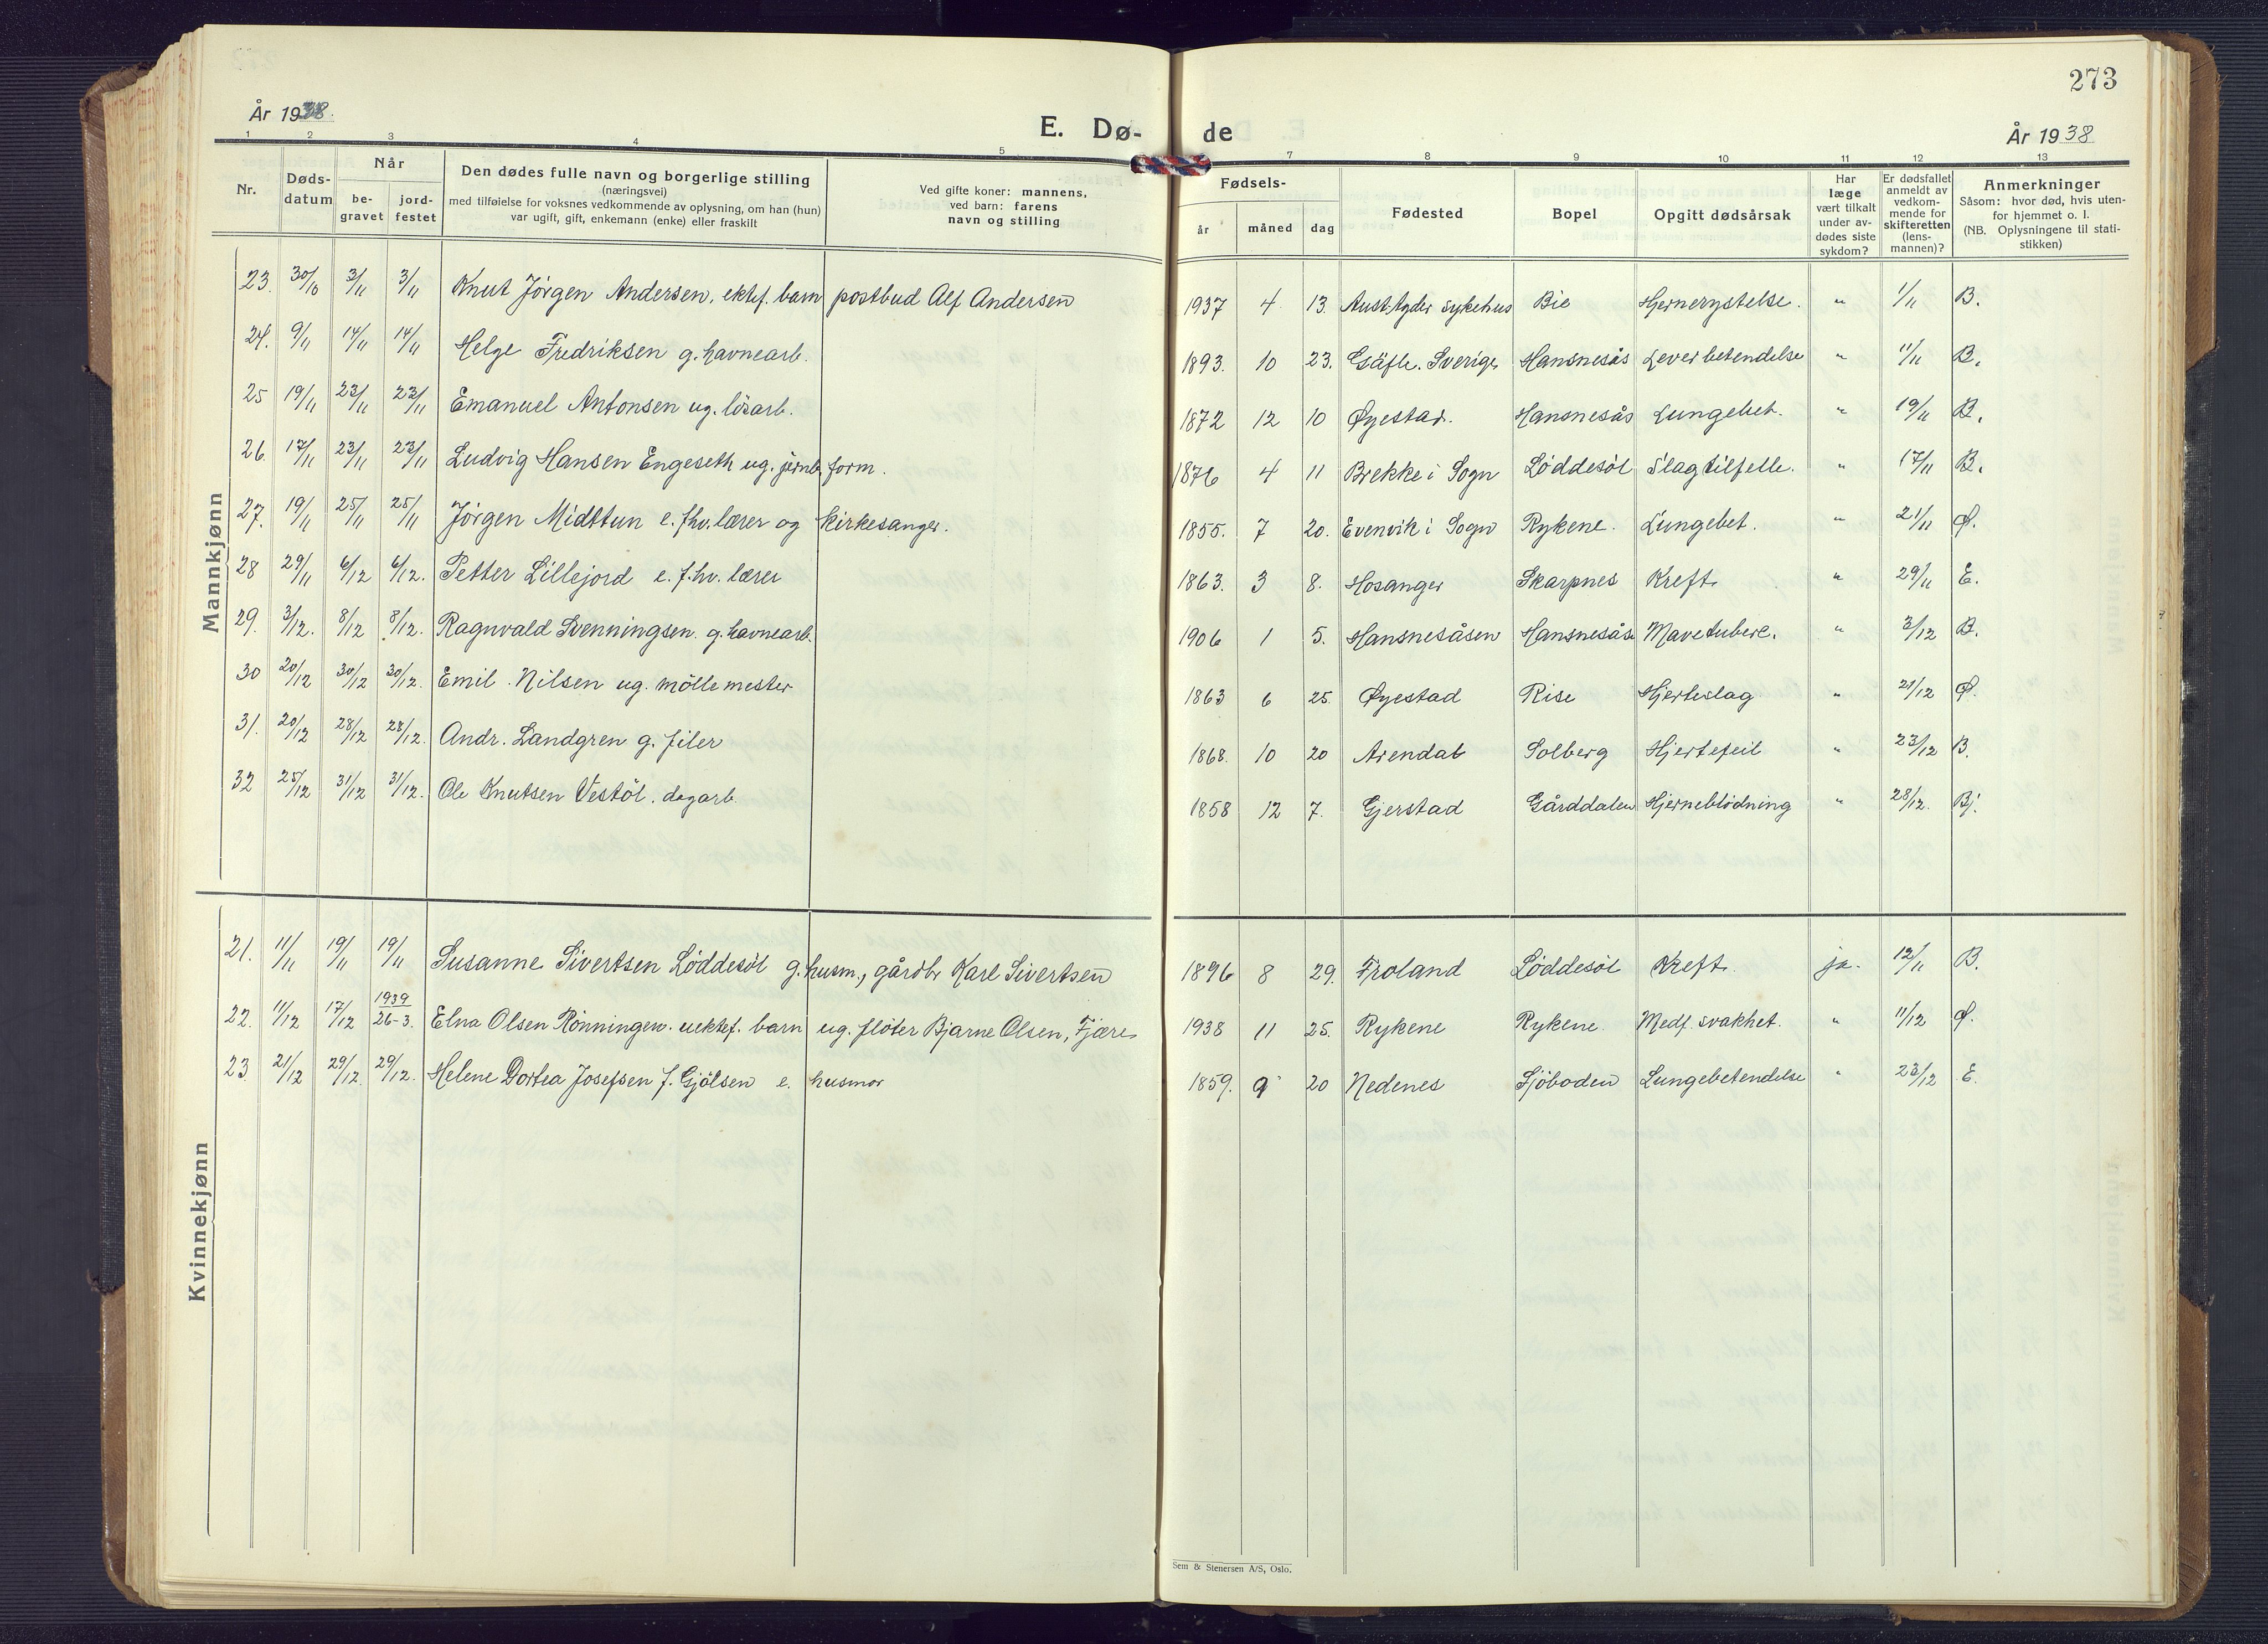 273
År 1938.
E. Dø- de
År 1938
1 2 3 4 5 7 8 9 10 11 12 13
Nr.
Døds-
datum
Når
be-
gravet
jord-
festet
Den dødes fulle navn og borgerlige stilling
(næringsvei)
med tilføielse for voksnes vedkommende av oplysning, om han (hun)
var ugift, gift, enkemann (enke) eller fraskilt
Ved gifte koner: mannens,
ved barn: farens
navn og stilling
Fødsels-
år måned dag
Fødested
Bopel
Opgitt dødsårsak
Har
læge
vært tilkalt
under av-
dødes siste
sykdom?
Er dødsfallet
anmeldt av
vedkom-
mende for
skifteretten
(lens-
mannen)?
Anmerkninger
Såsom: hvor død, hvis uten-
for hjemmet o. l.
(NB. Oplysningene til stati-
stikken)
Mannkjønn
23. 30/10 3/11 3/11 Knut Jörgen Andersen, ektef. barn postbud Alf Andersen 1937 4 13. Aust Agder sykehus Bie Hjernerystelse. " 1/11 B.
24. 9/11 14/11 14/11 Helge Fredriksen g. havnearb. 1893. 10 23. Gäfle. Sverige Hansnesås Leverbetendelse " 11/11 B.
25 19/11 23/11 23/11 Emanuel Antonsen ug. lösarb. 1872 12 10 Øyestad. Hansnesås Lungebet. " 19/11 B.
26. 17/11 23/11 23/11 Ludvig Hansen Engeseth ug. jernb form. 1876 4 11 Brekke i Sogn Løddesøl Slagtilfelle. " 17/11 B.
27. 19/11 25/11 25/11 Jörgen Midttun e. fhv. lærer og kirkesanger. 1855. 7 20. Evenvik i Sogn Rykene. Lungebet. " 21/11 Ø.
28 29/11 6/12 6/12. Petter Lillejord e. f.hv. lærer 1863. 3 8. Hosanger Skarpnes Kreft. " 29/11 E.
29. 3/12. 8/12 8/12. Ragnvald Svenningsen g. havnearb. 1906 1 5. Hansnesåsen Hansnesås Mavetuberk. " 3/12 B.
30 20/12 30/12 30/12. Emil Nilsen ug. möllemester 1863 6 25. Øyestad Rise Hjerteslag " 21/12 Ø.
31. 20/12 28/12 28/12. Andr. Landgren g. filer 1868. 10 20 Arendal Solberg Hjertefeil " 23/12 B.
32 25/12 31/12 31/12. Ole Knutsen Vestöl. dagarb. 1858 12 7. Gjerstad Gårddalen Hjerneblödning " 28/12. Bj.
Kvinnekjønn
21. 11/11 19/11 19/11 Susanne Sivertsen Løddesøl g. husm., gårdbr Karl Sivertsen 1896 8 29. Froland Løddesøl Kreft. ja. 12/11 B.
22. 11/12 17/12 1939 26-3. Elna Olsen Rönningen. uektef. barn ug. flöter Bjarne Olsen, Fjære 1938 11 25. Rykene Rykene. Medf. svakhet. " 11/12 Ø.
23. 21/12 29/12. 29/12. Helene Dortea Josefsen f. Gjölsen e. husmor 1859. 9 20 Nedenes Sjöboden Lungebetendelse " 23/12 E.
Sem & Stenersen A/S, Oslo.